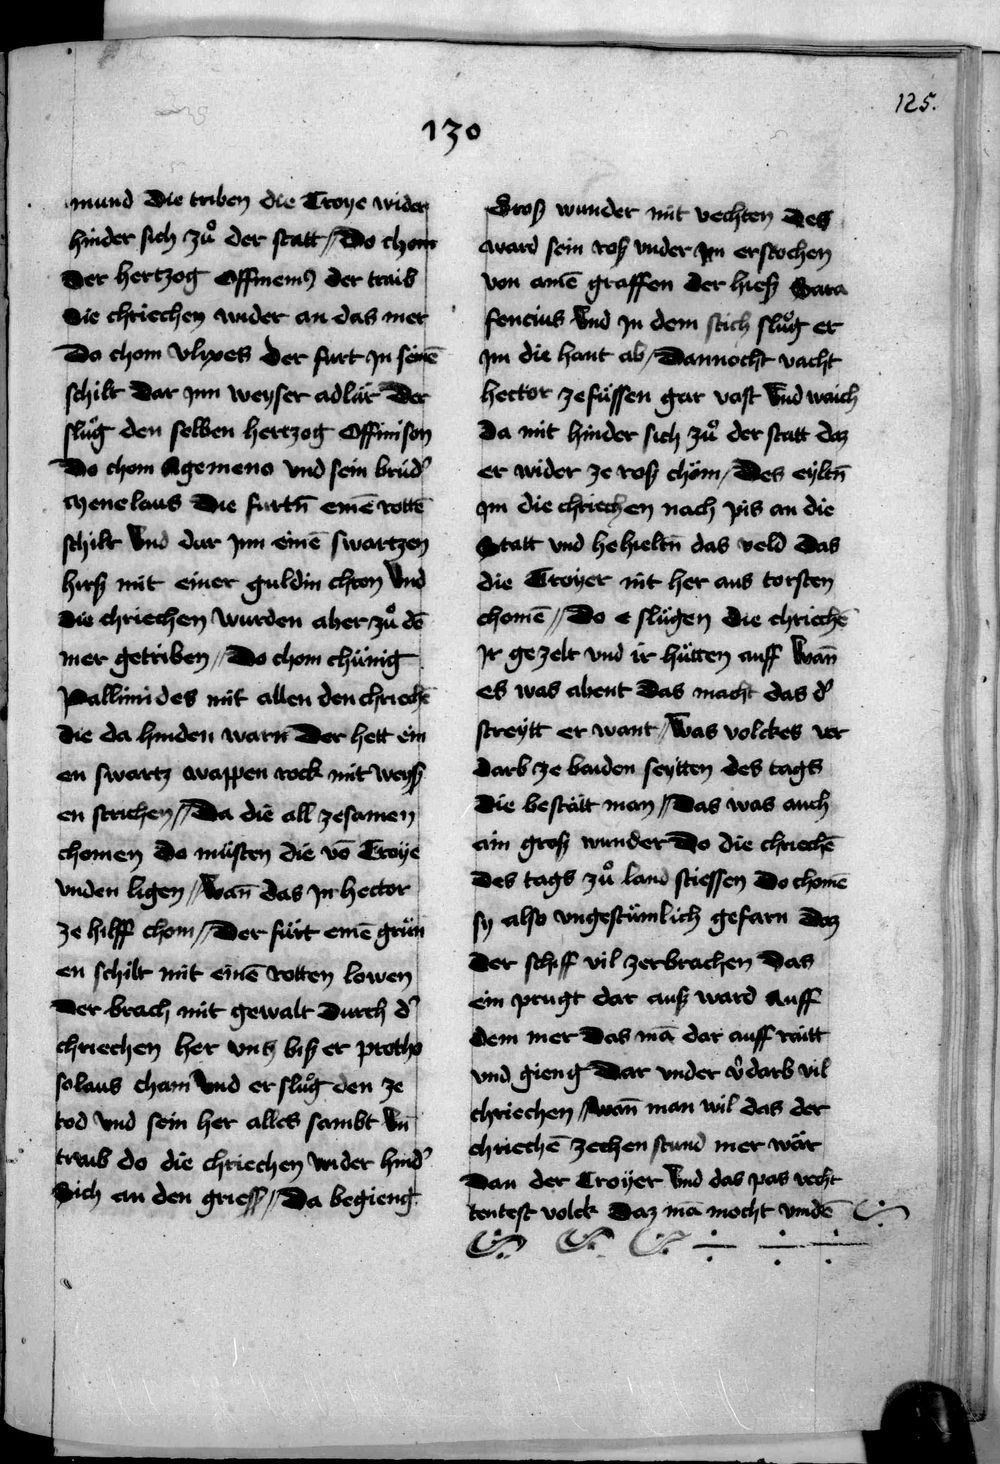 125.
130
mund Die triben die Troye wider
hinder sich zuͦ der statt // Do chom
Der hertzog Offinems der traib
Die chriechen wider an das mer
Do chom vlixes der furt in seinē
schilt dar inn weyser adlär Der
sluͤg den selben hertzog Offinison
Do chom Agemeno vnd sein brüd̓
Menelaus Die furtn̄ einē rottē
schilt Vnd dar inn einē swartzen
hirß mit einer guldin chron Vnd
Die chriechen wurden aber zuͦ dē
mer getriben // Do chom chünig
Pallimides mit allen den chriechē
Die da hinden warn̄ Der hett ein
en swartz wappen rock mit weyß
en strichen // Da die all zesamen
chomen Do müsten die vō Troye
vnden ligen // Wan̄ das in hector
ze hilff chom // Der fürt einē gruͤn
en schilt mit einē rotten lowen
Der brach mit gewalt Durch d̓
chriechen her vntz biß er protho
solaus cham Vnd er sluͦg den ze
tod Vnd sein her alles sambt Vn̄
traib do die chriechen wider hind̓
Sich an den grieß // Da begieng
Groß wunder mit vechten Des
ward sein roß vnder im erstochen
von ainē graffen der hieß Sara
fencius Vnd in dem stich sluͦg er
im die hant ab / Dannocht vacht
hector zefüssen gar vast Vnd waich
Da mit hinder sich zuͦ der statt daz
er wider ze roß chöm / Des eyltn̄
im die chriechen nach pis an die
Statt vnd behieltn̄ das veld Das
die Troyer nit her aus torsten
chomē // Do e slügen die chriechē
Ir gezelt vnd ir hütten auff Wan̄
es was abent Das macht das d̓
streytt er want // Was volckes ver
darb ze baiden seytten des tags
Die bestätt man // Das was auch
ain groß wunder Do die chriechē
Des tags zuͦ land stiessen Do chomē
sy also vngestümlich gefarn Daz
Der schiff vil zerbrachen Das
ein prugt dar auß ward Auff
dem mer Das mā dar auff raitt
vnd gieng Dar vnder v̓darb vil
chriechen // Wan̄ man wil das der
chriechē zechen stund mer wär
Dan der Troyer Vnd das pas vecht
tentest volck Daz mā mocht vindē